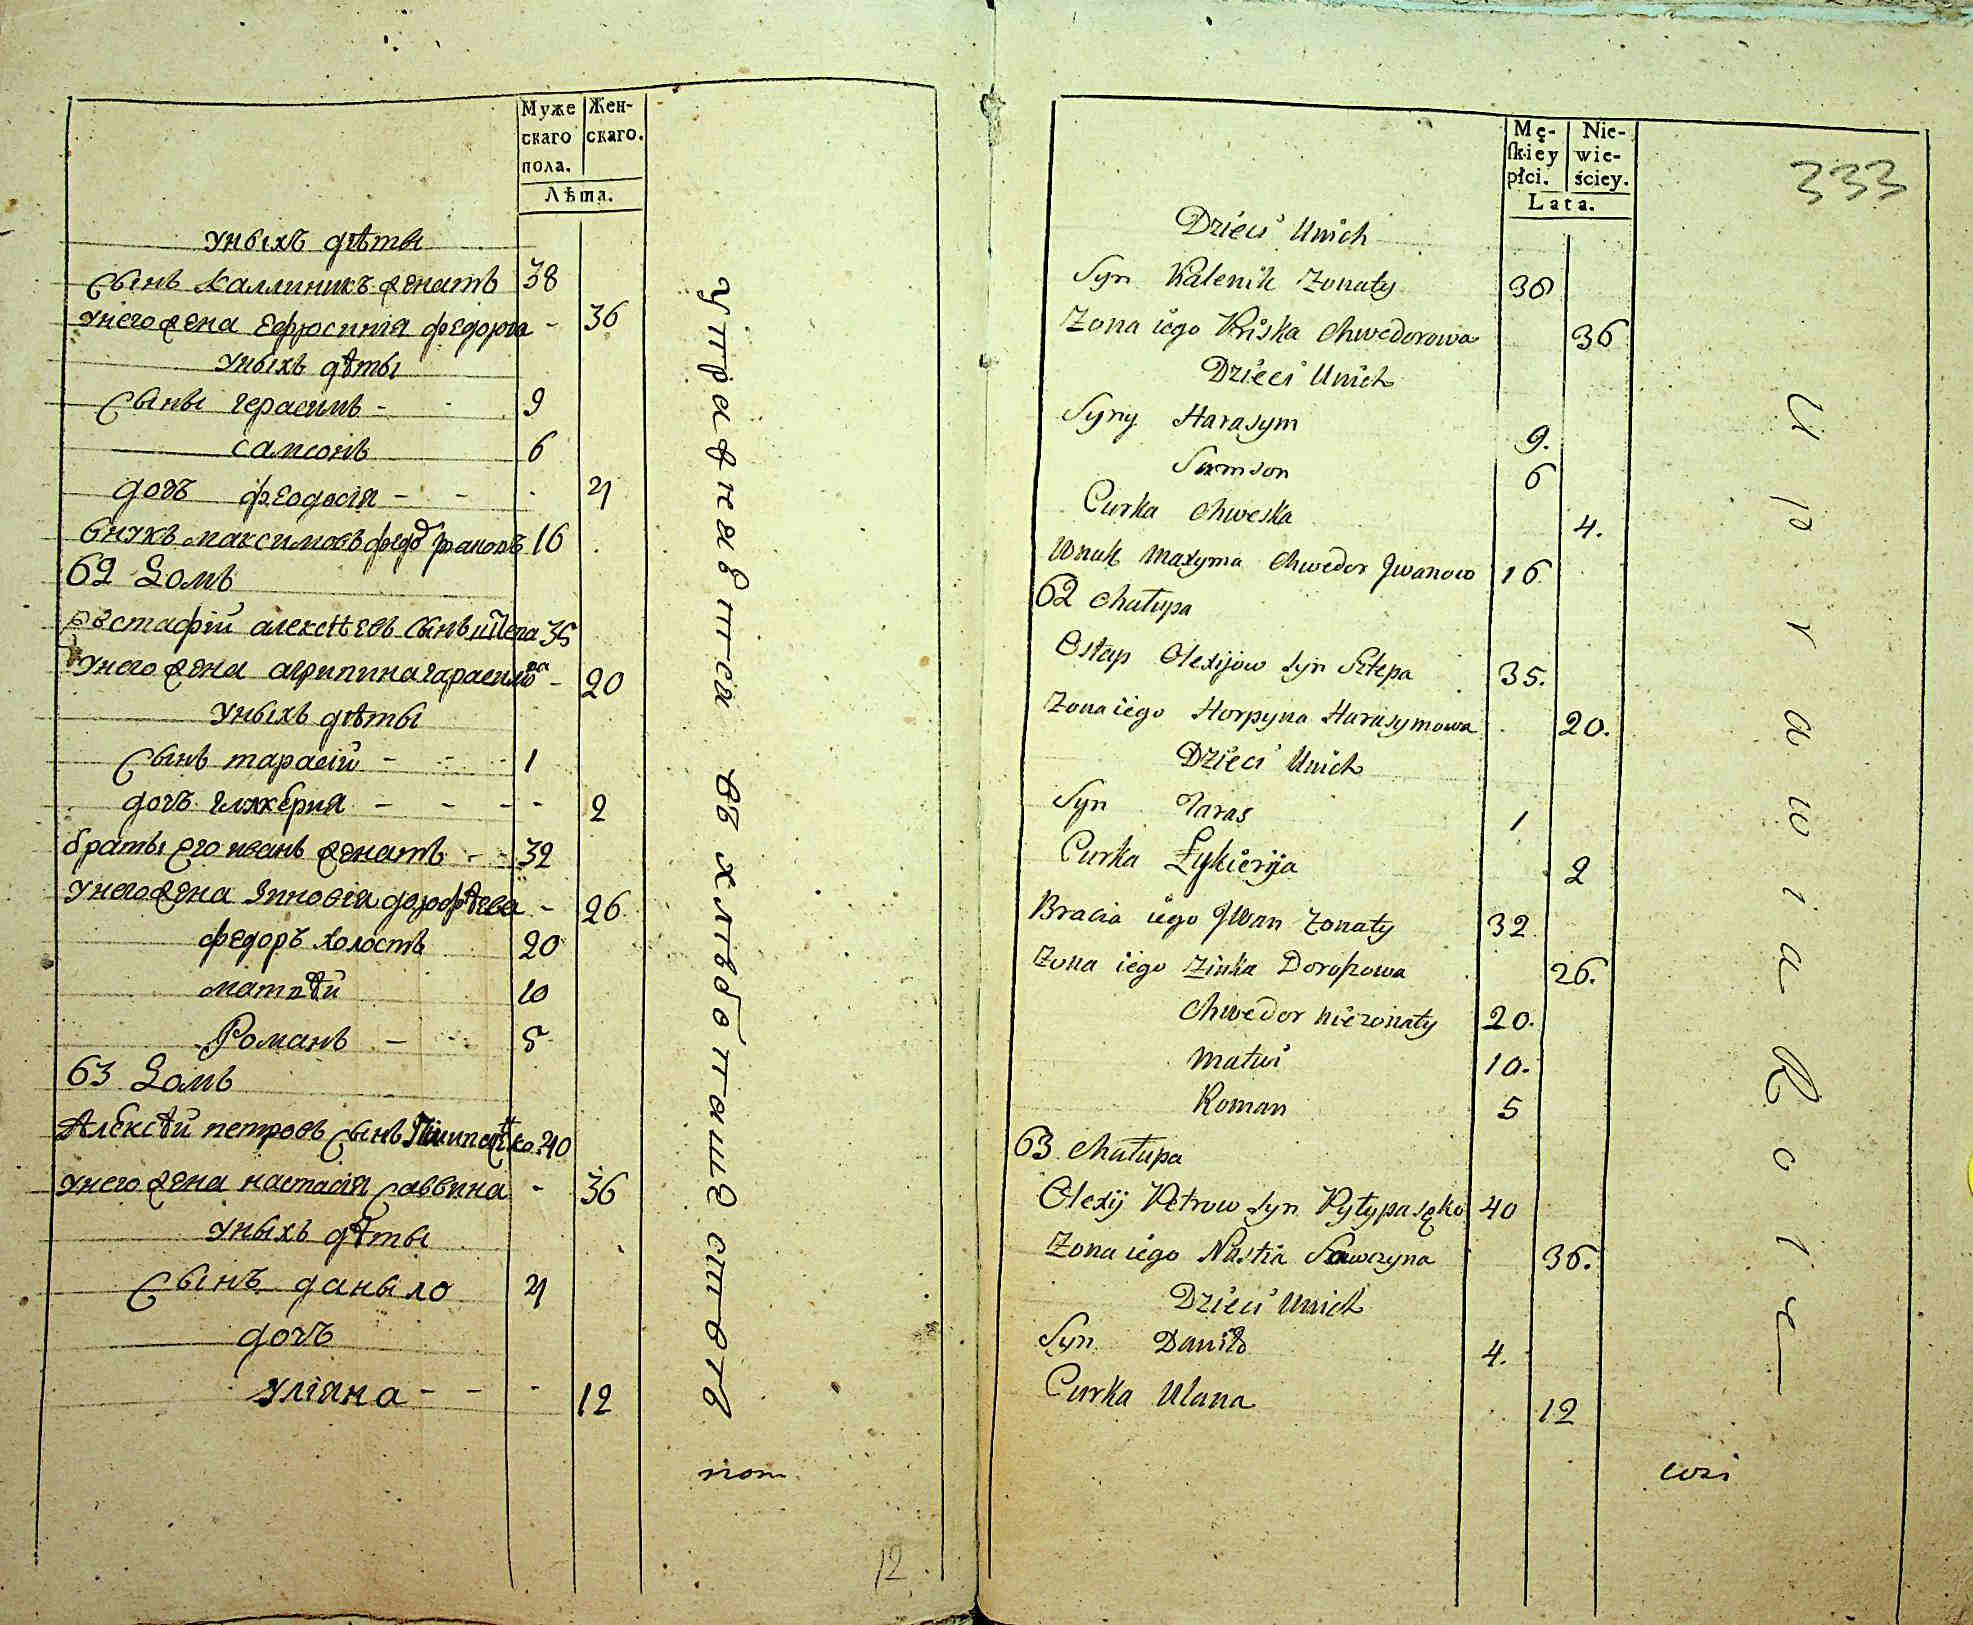 Муже
скаго
пола.
Жен-
скаго.
Лѣта.
уныхъ дѣты
сынъ каллиникъ женатъ 38
унего жена Ефросинія федорова - 36
уныхъ дѣты
сыны герасимъ - - 9
самсонъ 6
дочъ феодосія - - - 4
внукъ максимовъ федоръ 16
62 Домъ
Евстафій алексѣевъ сынъ штепа 35
унего жена агрипина гарасимова - 20
уныхъ дѣты
сынъ тарасій - - - 1
дочъ гликерия - - - - 2
браты его иванъ женатъ - - 32
унего жена Зиновія дорофѣева - 26
федоръ холостъ 20
матвѣй 10
Романъ - - 5
63 Домъ
Алексѣй петровъ сынъ 40
унего жена настасія саввина - 36
уныхъ дѣты
сынъ даныло 4
дочъ
уліяна - - - 12
упражняется въ хлѣбопашествѣ
пом
12
Mę-
skiey
płci.
Nie-
wie-
ściey.
Lata.
333
Dzieci Unich
Syn Kalenik Zonaty 38
Zona iego Priska Chwedorowa 36
Dzieci Unich
Syny Harasym 9.
Samson 6
Curka Chweska 4.
Wnuk Maxyma Chwedor Jwanow 16
62 Chałupa
Ostap Olexijow syn Sztepa 35.
Zona iego Horpyna Harasymowa 20.
Dzieci Unich
Syn Taras 1
Curka Łykierija 2
Bracia iego Jwan Zonaty 32
Zona iego Zinka Doroszowa 26.
Chwedor niezonaty 20.
Matwi 10.
Roman 5
63 Chałupa
Olexij Petrow syn Pyłypasęko 40
Zona iego Nastia Sawczyna 36.
Dzieci Unich
Syn Daniło 4.
Curka Ulana 12
Uprawia Rolę
wsi